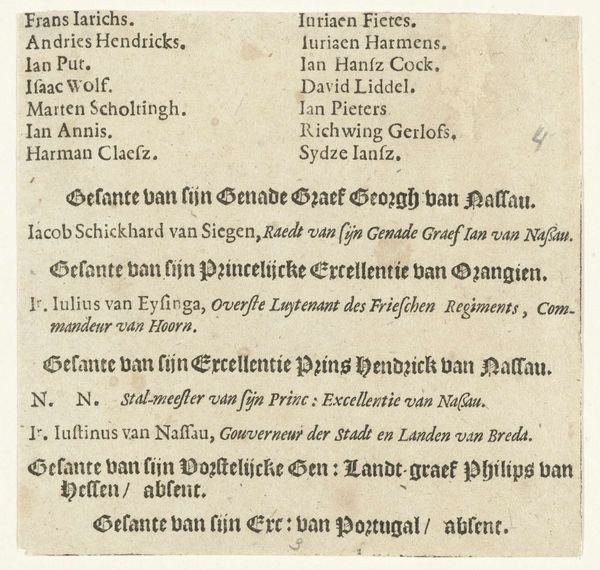 Frans Iarichs.
Andries Hendricks.
Ian Put.
Isaac Wolf.
Marten Scholtingh.
Ian Annis.
Harman Claesz.
Iuriaen Fietes.
Iuriaen Harmens.
Ian Hansz Cock.
David Liddel.
Ian Pieters
Richwing Gerlofs.
Sydze Iansz.
4
Gesante van sijn Genade Graef Georgh van Nassau.
Iacob Schickhard van Siegen, Raedt van sijn Genade Graef Ian van Naßau.
Gesante van sijn Princelijcke Excellentie van Orangien.
Ir. Iulius van Eysinga, Overste Luytenant des Frieschen Regiments, Com-
mandeur van Hoorn.
Gesante van sijn Excellentie Prins Hendrick van Nassau.
N. N. Stal-meester van sijn Princ: Excellentie van Naßau.
Ir. Iustinus van Nassau, Gouverneur der Stadt en Landen van Breda.
Gesante van sijn Vorstelijcke Gen: Landt-graef Philips van
Hessen/ absent.
Gesante van sijn Exc: van Portugal/ absent.